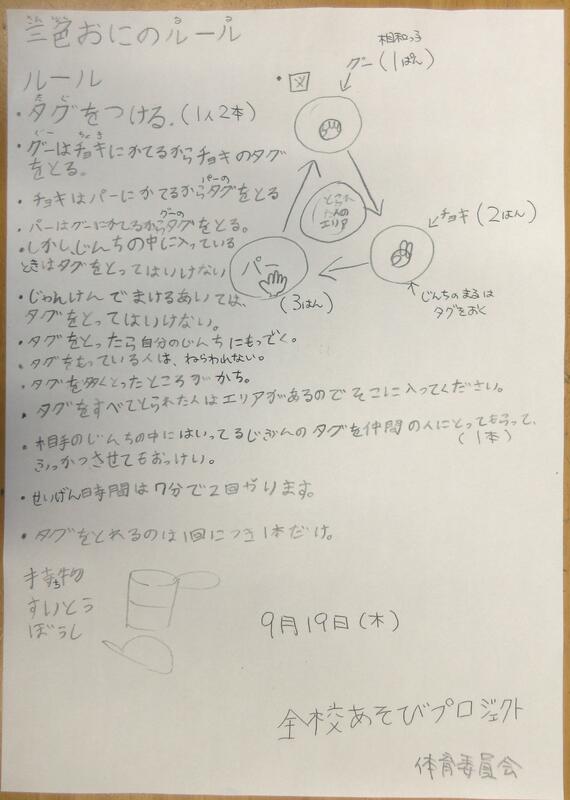 三色おにのルール
ルール
・タグをつける。(1人2本)
・グーはチョキにかてるからチョキのタグ
をとる。
・チョキはパーにかてるからパーのタグをとる
・パーはグーにかてるからグーのタグをとる。
・しかし、じんちの中に入っている
ときはタグをとってはいけない
・じゃんけんでまけるあいては、
タグをとってはいけない。
・タグをとったら自分のじんちにもってく。
・タグをもっている人は、ねらわれない。
・タグを多くとったところがかち。
・タグをすべてとられた人はエリアがあるのでそこに入ってください。
・相手のじんちの中にはいってるじぶんのタグを仲間の人にとってもらって、
(1本)
ふっかつさせてもおっけい。
・せいげん時間は7分で2回やります。
・タグをとれるのは1回につき1本だけ。
・図
相和っ子
グー(1ぱん)
とられ
た人の
エリア
チョキ(2はん)
パー
(3ぱん)
じんちのまるは
タグをおく
持ち物
すいとう
ぼうし
9月19日(木)
全校あそびプロジェクト
体育委員会